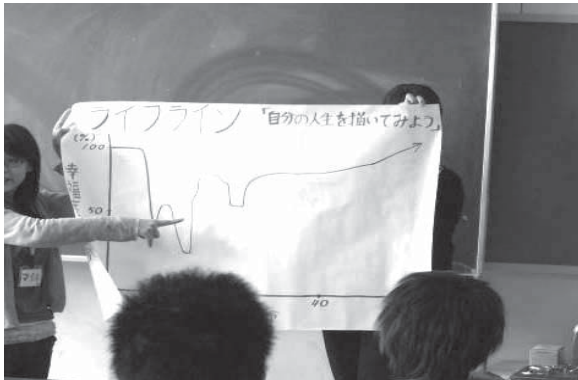 ライフライン 「自分の人生を描いてみよう」
(%)
100
幸福
50
40